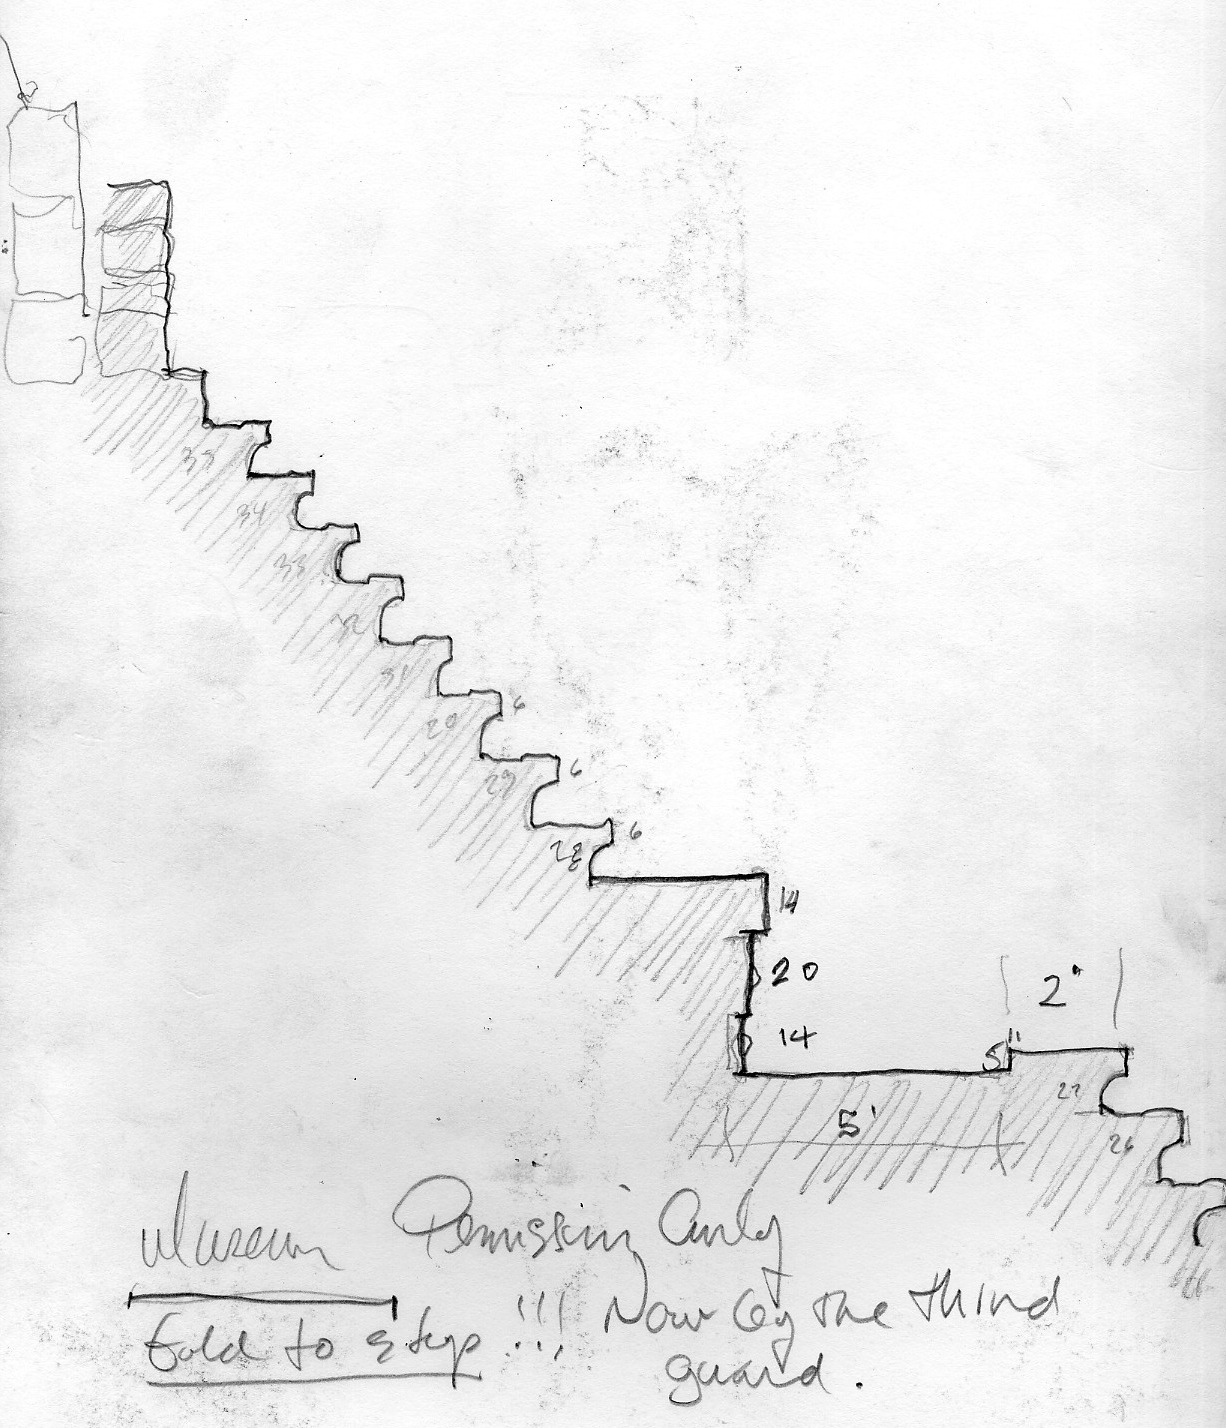 35
34
33
32
31
30
29
6
6
28
6
14
20
2"
14
5"
27
5'
26
Museum Permission Only
told to stop !!! Now by the third
guard.